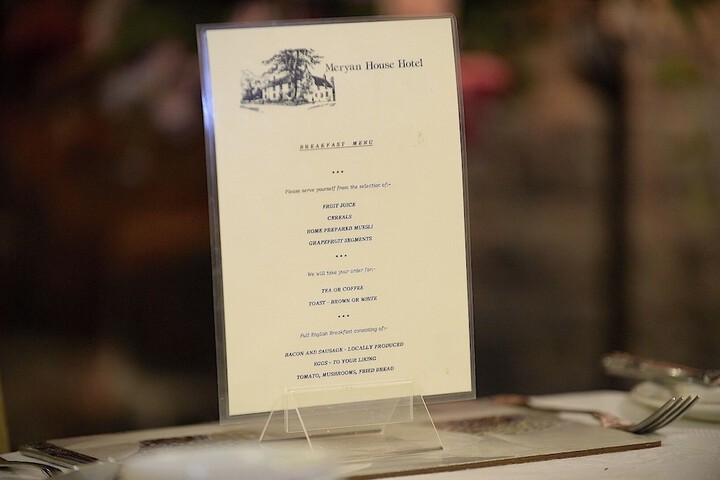 Meryan House Hotel
BREAKFAST MENU
***
Please serve yourself from the selection of:-
FRUIT JUICE
CEREALS
HOME PREPARED MUESLI
GRAPEFRUIT SEGMENTS
***
We will take your order for:-
TEA OR COFFEE
TOAST - BROWN OR WHITE
***
Full English Breakfast consisting of:-
BACON AND SAUSAGE - LOCALLY PRODUCED
EGGS - TO YOUR LIKING
TOMATO, MUSHROOMS, FRIED BREAD